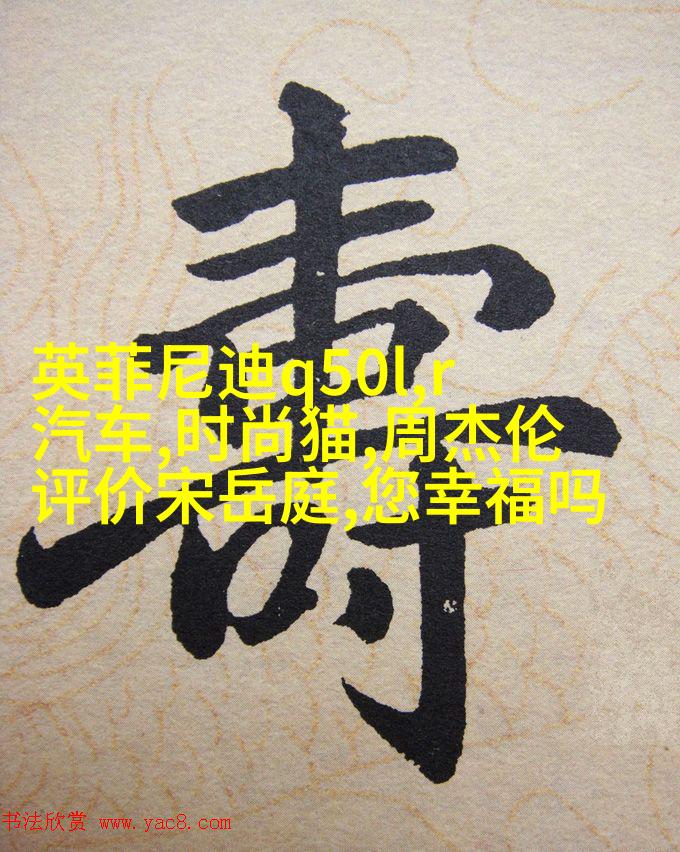 壽
英菲尼迪q50l,r
汽车,时尚猫,周杰伦
评价宋岳庭,您幸福吗
书法欣赏 www.yac8.com